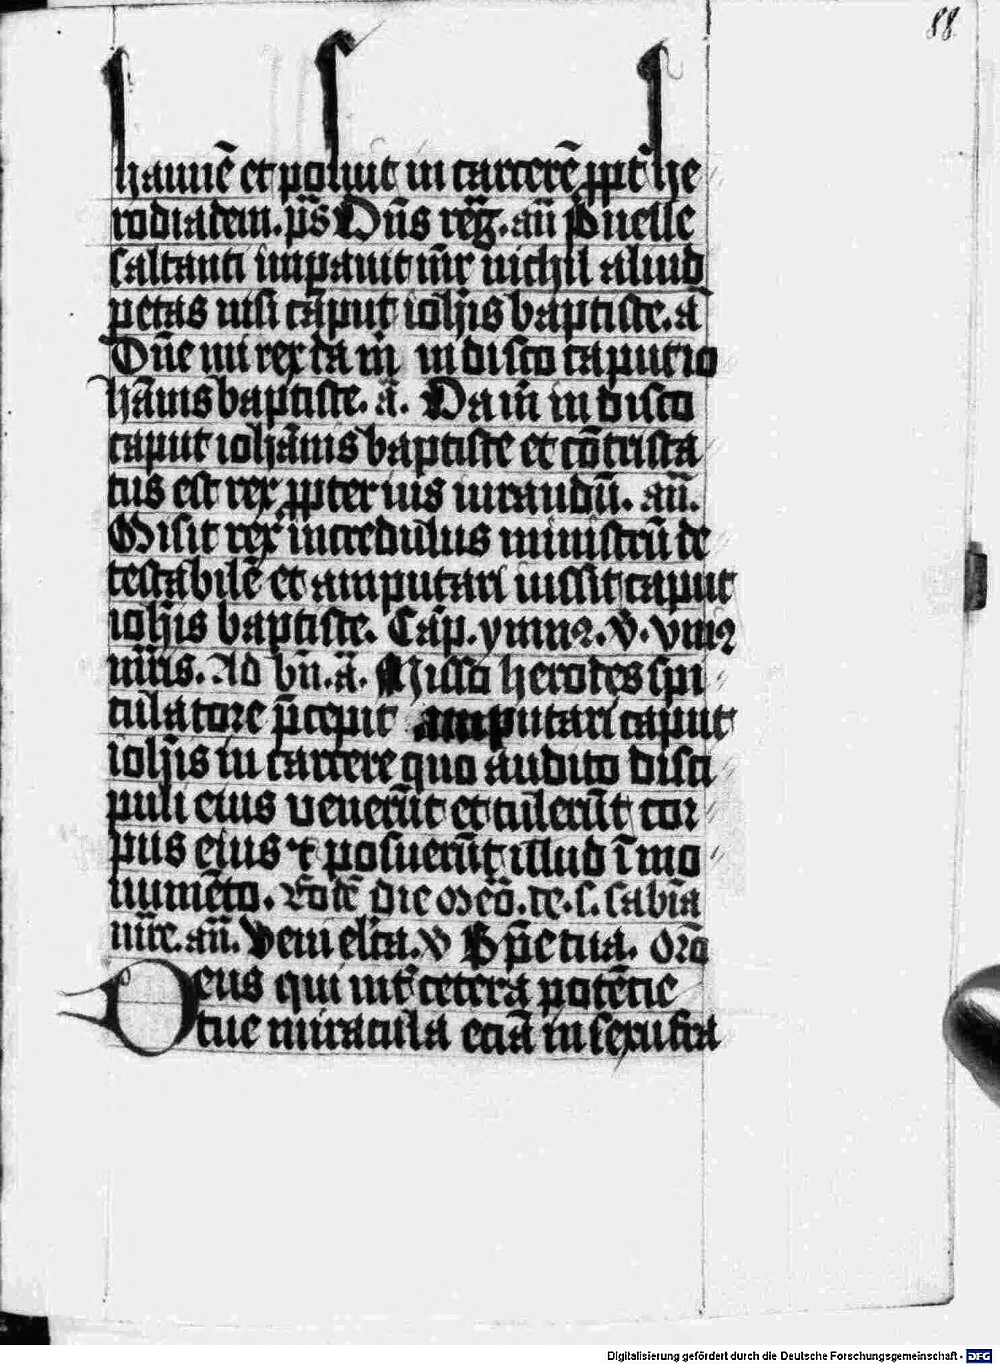 88
hannē et posuit in carcerē ppt̄ he
rodiadem. ps̄ Dn̄s reḡ. an̄ Puelle
saltanti impauit mr̄ nichil aliud
petas nisi caput ioh̄is baptiste. ā
Dn̄e mi rex da m̄ in disco caput io
hānis baptiste. ā. Da m̄ in disco
caput iohānis baptiste et cōtrista
tus est rex ppter ius iurandū. an̄.
Misit rex incredulus ministrū de
testabilē et amputari iussit caput
ioh̄is baptiste. Cap̄. ymnꝰ. v̄.
Ad bn̄. ā. Misso herodes spi
culatore p̄cepit amputari caput
ioh̄is in carcere quo audito disci
puli eius venerūt et tulerūt cor
pus eius ⁊ posuerūt illud ī mo
numēto. Eodē die meō. de. s. sabina
mr̄e. an̄. Veni elc̄a. v̄ Sp̄e tua. orō
Deus qui int̄ cetera potētie
tue miracula eciā in sexu fra
Digitalisierung gefördert durch die Deutsche Forschungsgemeinschaft - DFG